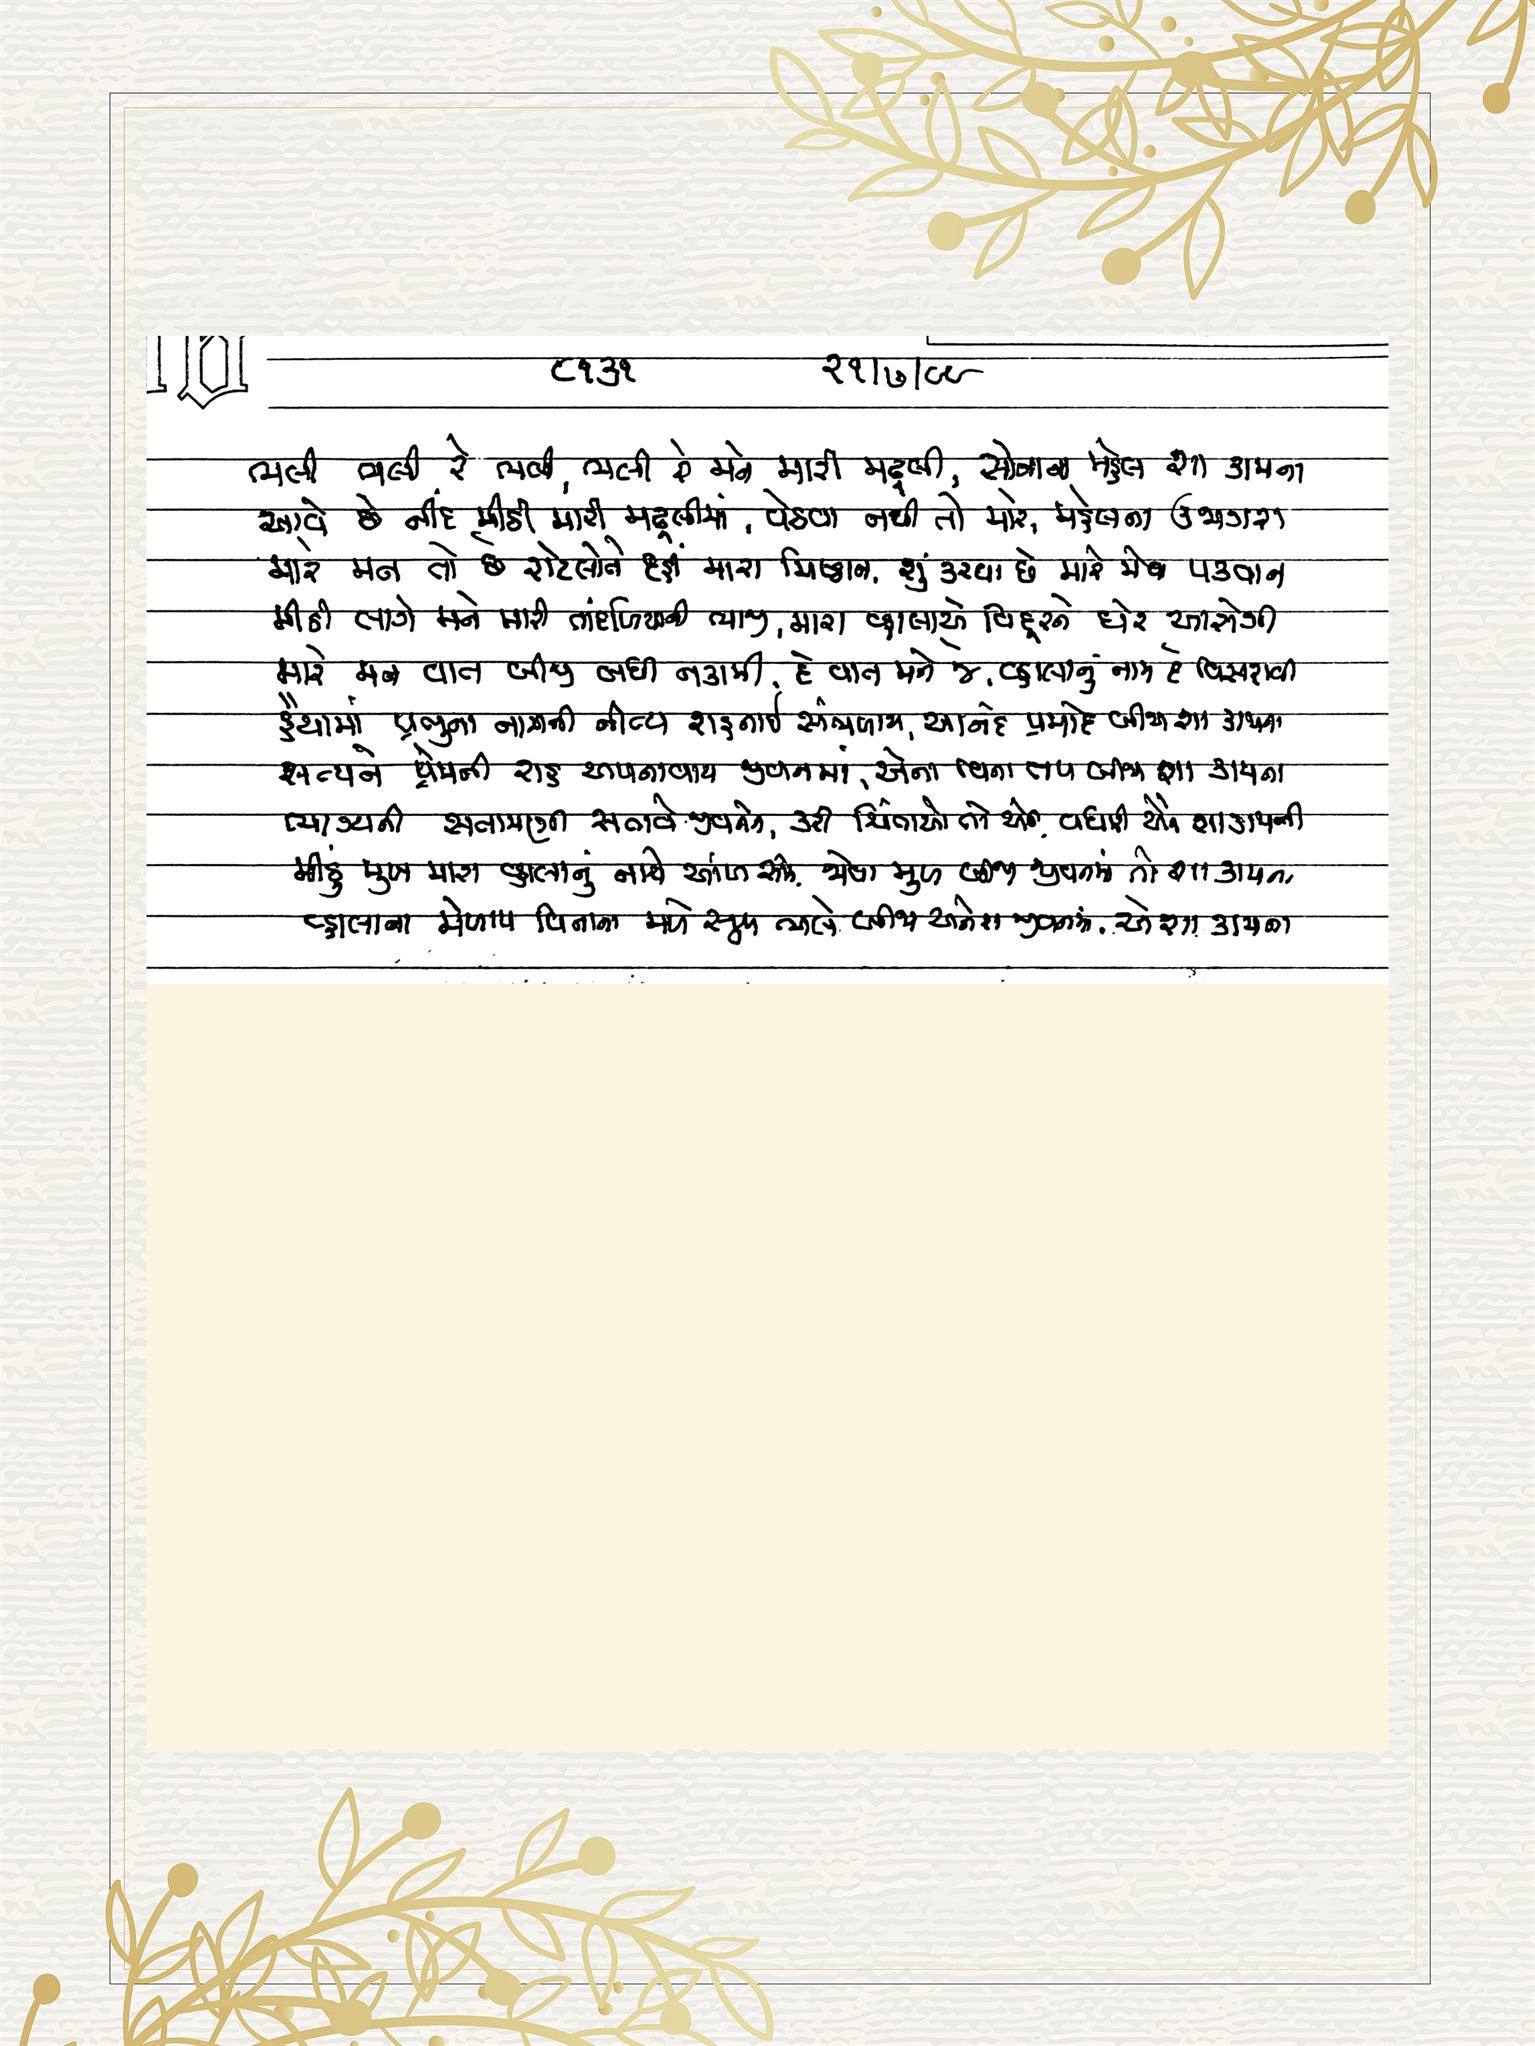 ૮૧૩૧ ૨૧/૭/૯૯
ભલી ભલી રે ભલી, ભલી રે મને મારી મઢૂલી, સોનાના મહેલ શા કામના
આવે છે નીંદ મીઠી મારી મઢૂલીમાં, વેઠવા નથી તો મારે, મહેલના ઉજાગરા
મારે મન તો છે રોટલોને દહીં મારા મિષ્ટાન, શું કરવા છે મારે મેવા પકવાન
મીઠી લાગે મને મારી તાંદળિયાની ભાજી, મારા વ્હાલાએ વિદૂરને ઘેર આરોગી
મારે મન વાત બીજી બધી નકામી, દે વાત મને જે, વ્હાલાનું નામ દે વિસરાવી
હૈયામાં પ્રભુના નામની નીત્ય શહનાઈ સંભળાય, આનંદ પ્રમોદ બીજા શા કામના
સત્યને પ્રેમની રાહ અપનાવાય જીવનમાં, એના વિના તપ બીજા શા કામના
ભાગ્યની સતામણી સતાવે જીવનને, કરી ચિંતાઓ તો એની, વધારી એને શા કામની
મીઠું મુખ મારા વ્હાલાનું નાચે આંખ સામે, એવા મુખ બીજા જીવનમાં તો શા કામના
વ્હાલાના મેળાપ વિનાના મળે સુખ ભલે બીજા અનેક જીવનમાં, એ શા કામના